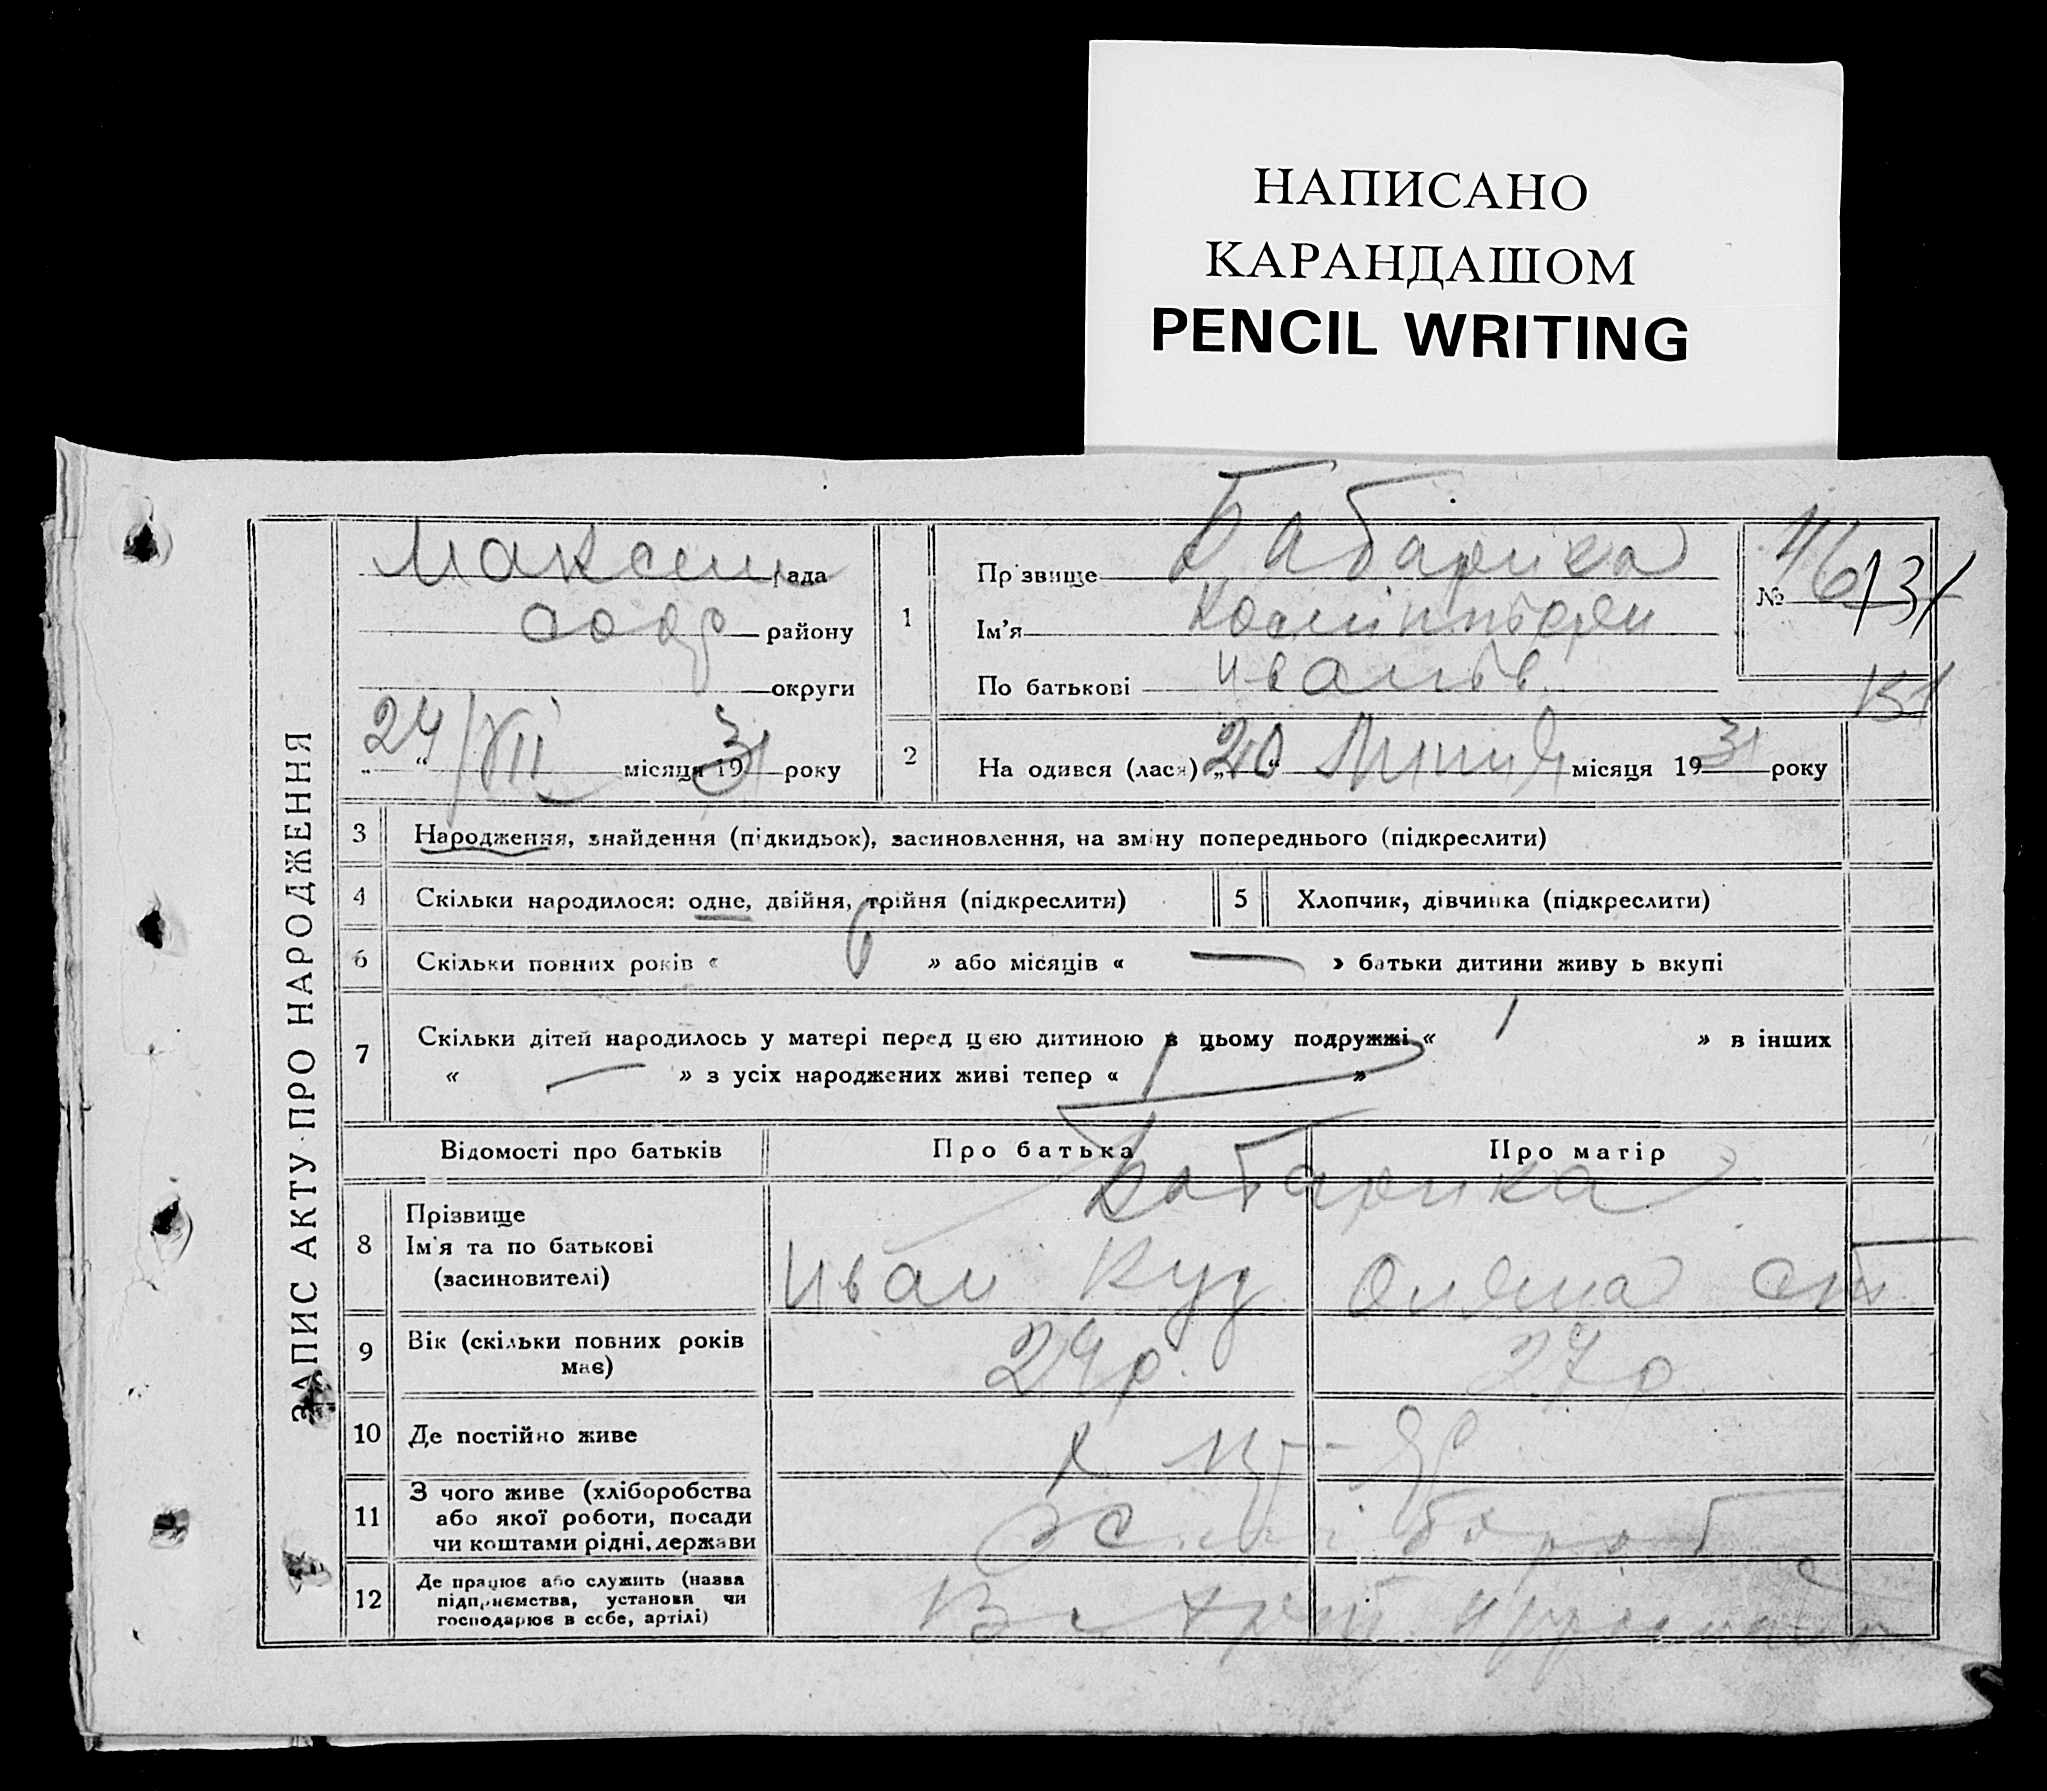 НАПИСАНО
КАРАНДАШОМ
PENCIL WRITING
ЗАПИС АКТУ ПРО НАРОДЖЕННЯ
рада
району
округи
24/VII місяця 1931 року
1
Прізвище Бабарика
Ім'я
По батькові
№ 46/31
151
2 На одився (лася) „20“ Липня місяця 1931 року
3 Народження, знайдення (підкидьок), засиновлення, на зміну попереднього (підкреслити)
4 Скільки народилося: одне, двійня, трійня (підкреслити)
5 Хлопчик, дівчинка (підкреслити)
6 Скільки повних років « 6 » або місяців « — » батьки дитини живу ь вкупі
7 Скільки дітей народилось у матері перед цією дитиною в цьому подружжі « 1 » в інших
« — » з усіх народжених живі тепер « 1 »
Відомості про батьків Про батька Про матір
Бабарика
8 Прізвище
Ім'я та по батькові
(засиновителі)
Иван Куз
9 Вік (скільки повних років
має)
29р. 27р
10 Де постійно живе
11 З чого живе (хліборобства
або якої роботи, посади
чи коштами рідні, держави
12 Де працює або служить (назва
підприємства, установи чи
господарює в себе, артілі)